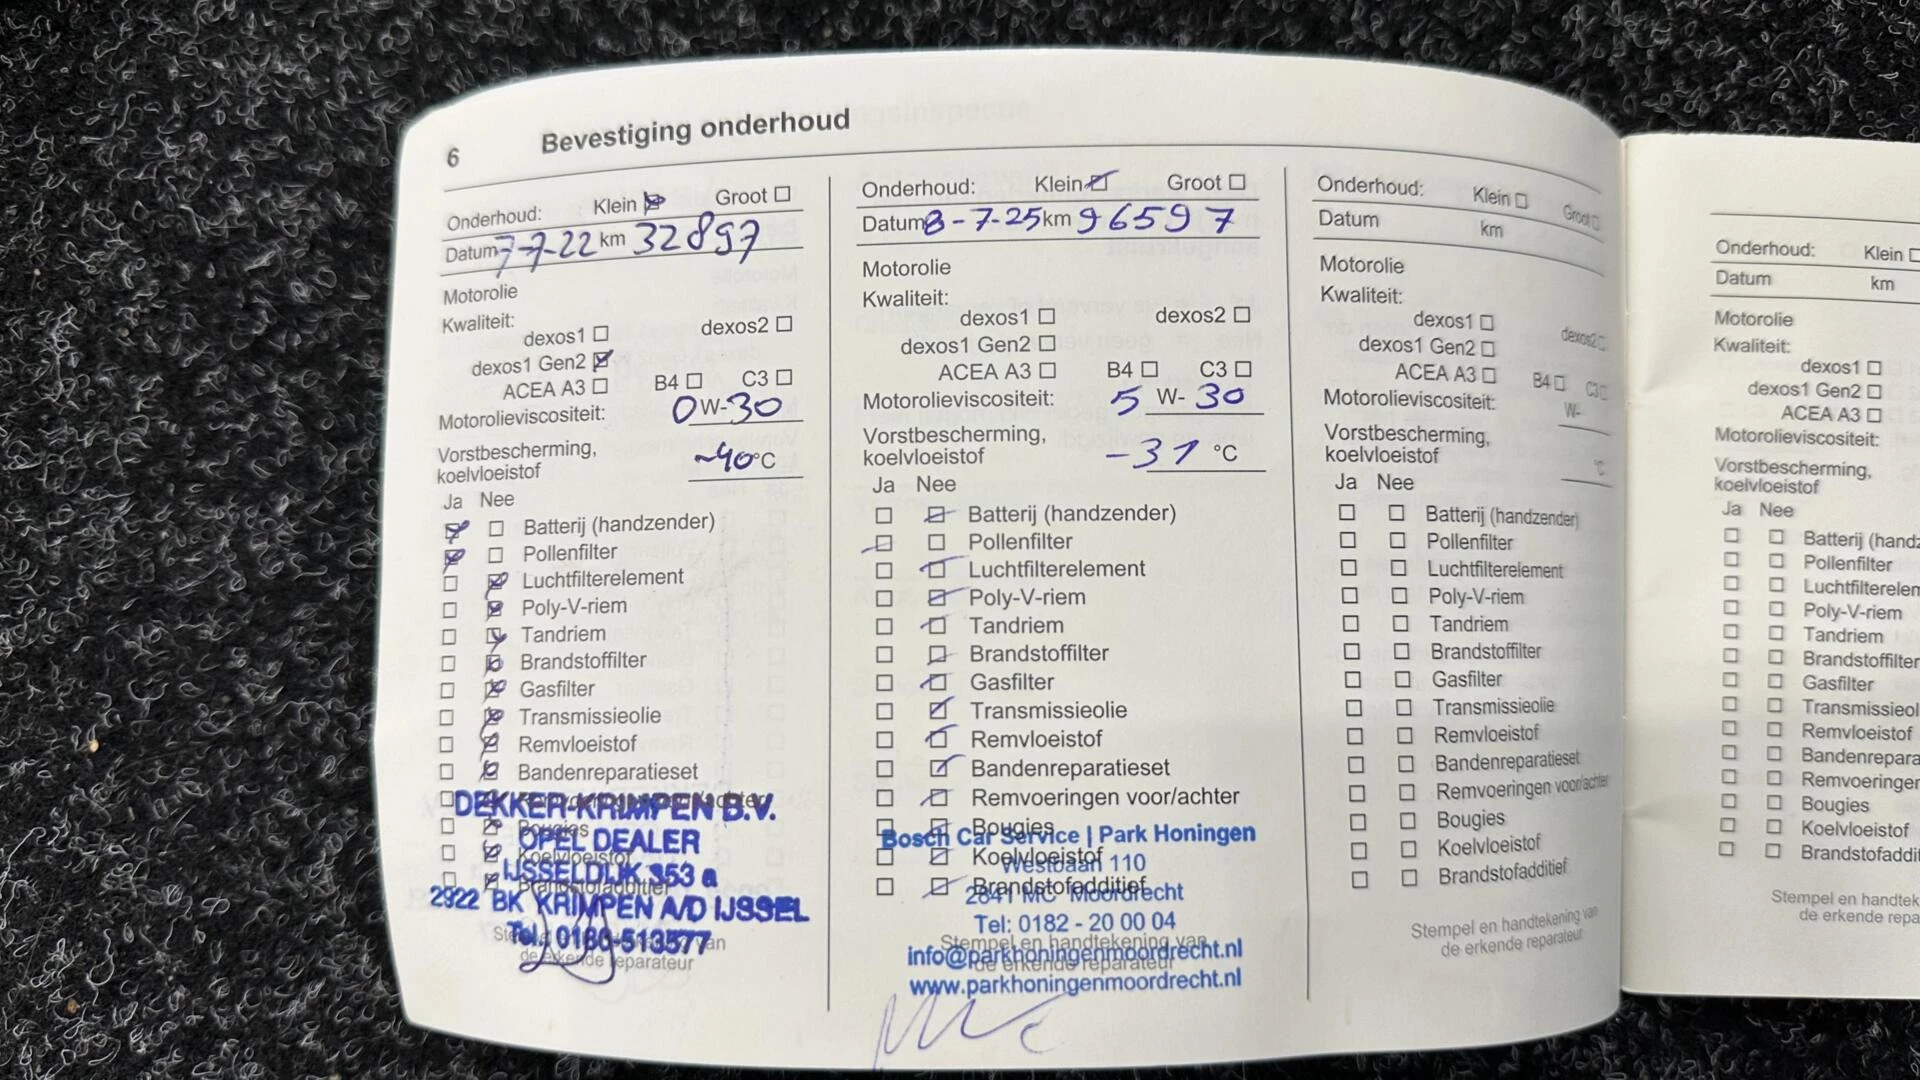 6 Bevestiging onderhoud
Onderhoud: Klein Groot
Datum 7-7-22 km 32897
Motorolie
Kwaliteit:
dexos1 dexos2
dexos1 Gen2
ACEA A3 B4 C3
Motorolieviscositeit: 0 W- 30
Vorstbescherming,
koelvloeistof ~40 °C
Ja Nee
Batterij (handzender)
Pollenfilter
Luchtfilterelement
Poly-V-riem
Tandriem
Brandstoffilter
Gasfilter
Transmissieolie
Remvloeistof
Bandenreparatieset
Remvoeringen voor/achter
DEKKER-KRIMPEN B.V.
Bougies
OPEL DEALER
Koelvloeistof
IJSSELDIJK 353 a
Brandstofadditief
2922 BK KRIMPEN A/D IJSSEL
Stempel en handtekening van
Tel. 0180-513577
de erkende reparateur
Onderhoud: Klein Groot
Datum 8-7-25 km 96597
Motorolie
Kwaliteit:
dexos1 dexos2
dexos1 Gen2
ACEA A3 B4 C3
Motorolieviscositeit: 5 W- 30
Vorstbescherming,
koelvloeistof -31 °C
Ja Nee
Batterij (handzender)
Pollenfilter
Luchtfilterelement
Poly-V-riem
Tandriem
Brandstoffilter
Gasfilter
Transmissieolie
Remvloeistof
Bandenreparatieset
Remvoeringen voor/achter
Bougies
Bosch Car Service | Park Honingen
Koelvloeistof
Westbaan 110
Brandstofadditief
2841 MC Moordrecht
Tel: 0182 - 20 00 04
Stempel en handtekening van
info@parkhoningenmoordrecht.nl
de erkende reparateur
www.parkhoningenmoordrecht.nl
Onderhoud: Klein Groot
Datum km
Motorolie
Kwaliteit:
dexos1 dexos2
dexos1 Gen2
ACEA A3 B4 C3
Motorolieviscositeit: W-
Vorstbescherming,
koelvloeistof °C
Ja Nee
Batterij (handzender)
Pollenfilter
Luchtfilterelement
Poly-V-riem
Tandriem
Brandstoffilter
Gasfilter
Transmissieolie
Remvloeistof
Bandenreparatieset
Remvoeringen voor/achter
Bougies
Koelvloeistof
Brandstofadditief
Stempel en handtekening van
de erkende reparateur
Onderhoud: Klein
Datum km
Motorolie
Kwaliteit:
dexos1
dexos1 Gen2
ACEA A3
Motorolieviscositeit:
Vorstbescherming,
koelvloeistof
Ja Nee
Batterij (handz
Pollenfilter
Luchtfilterelem
Poly-V-riem
Tandriem
Brandstoffilter
Gasfilter
Transmissieol
Remvloeistof
Bandenrepara
Remvoeringen
Bougies
Koelvloeistof
Brandstofaddit
Stempel en handtek
de erkende repa